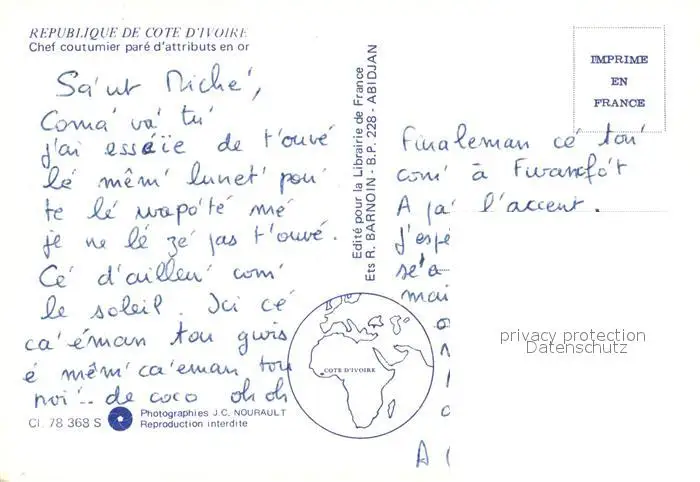 REPUBLIQUE DE COTE D'IVOIRE
Chef coutumier paré d'attributs en or
Sa'ut Miché',
Coma' va' tu'
j'ai esséïe de t'ouvé
lé mêm' lunet' pou'
te lé wapo'té mé
je ne lé zé pas t'ouvé.
Cé d'ailleu' com'
le soleil. Ici cé
ca'éman tou gwis
é mêm' ca'eman tou
noi'.. de coco oh oh
Cl. 78 368 S
Photographies J.C. NOURAULT
Reproduction interdite
Edité pour la Librairie de France
Ets R. BARNOIN - B.P. 228 - ABIDJAN
COTE D'IVOIRE
IMPRIME
EN
FRANCE
Finaleman cé tou'
com' à Fwancfo't
A ja' l'accent.
j'espé
se'a
mai
A
privacy protection
Datenschutz